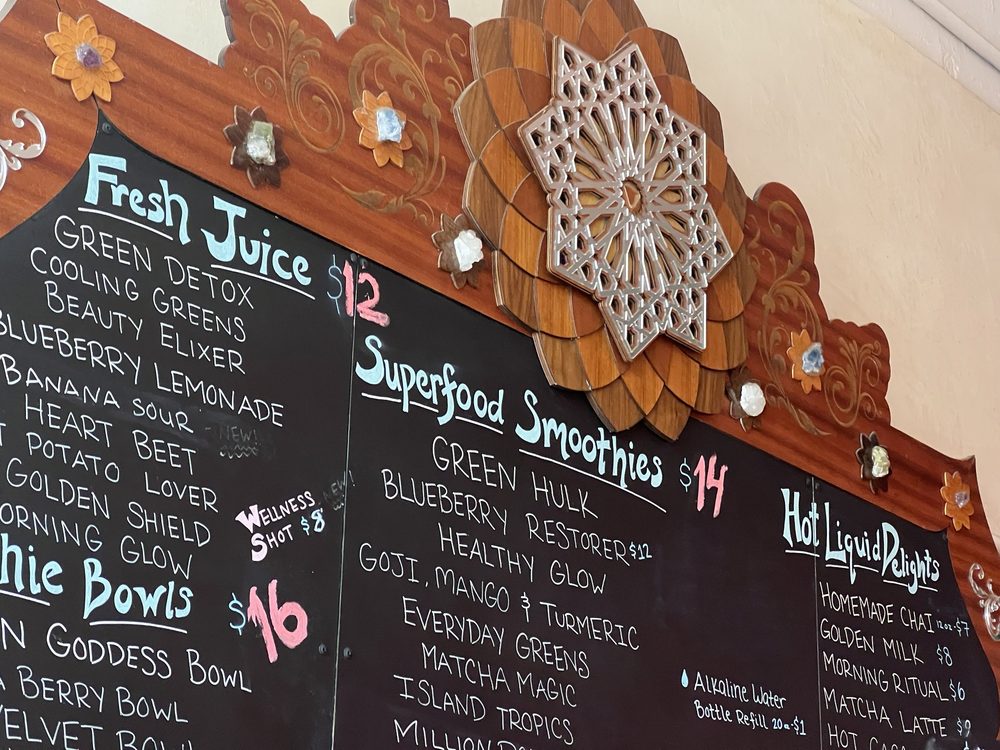 Fresh Juice $12
GREEN DETOX
COOLING GREENS
BEAUTY ELIXER
BLUEBERRY LEMONADE
BANANA SOUR - NEW!
HEART BEET
POTATO LOVER
GOLDEN SHIELD
MORNING GLOW
WELLNESS NEW!
SHOT $8
Bowls $16
GODDESS BOWL
BERRY BOWL
VELVET BOWL
Superfood Smoothies $14
GREEN HULK
BLUEBERRY RESTORER $12
HEALTHY GLOW
GOJI, MANGO & TURMERIC
EVERYDAY GREENS
MATCHA MAGIC
ISLAND TROPICS
Alkaline Water
Bottle Refill 20oz-$1
Hot Liquid Delights
HOMEMADE CHAI 12oz-$7
GOLDEN MILK $8
MORNING RITUAL $6
MATCHA LATTE $9
HOT